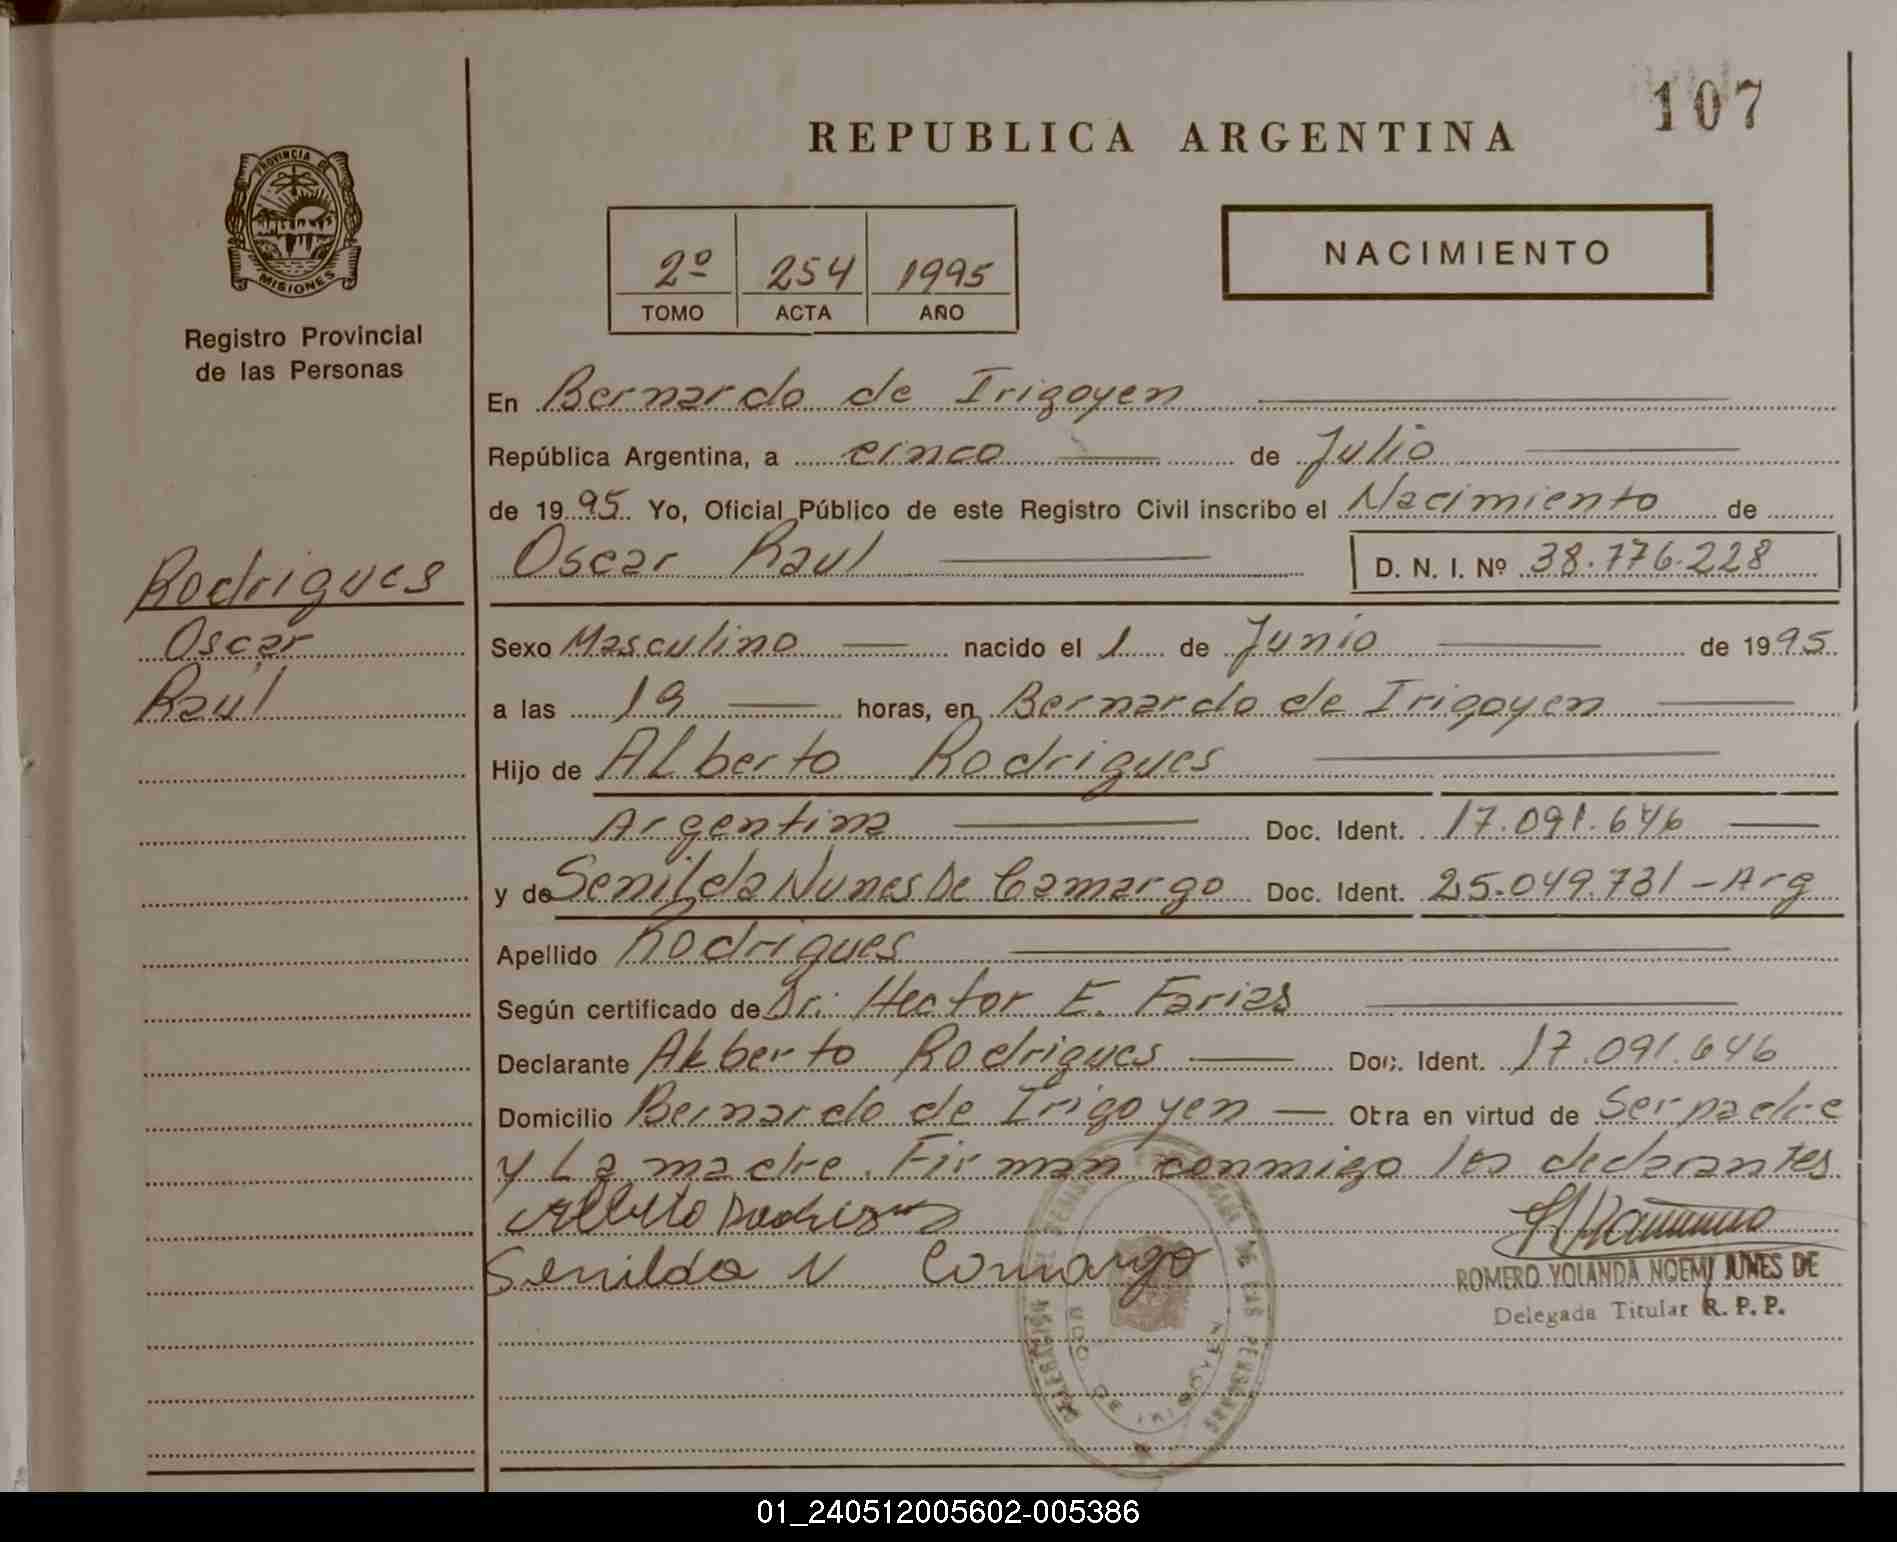 107
REPUBLICA ARGENTINA
PROVINCIA DE
MISIONES
Registro Provincial
de las Personas
2º 254 1995
TOMO ACTA AÑO
NACIMIENTO
En Bernardo de Irigoyen
República Argentina, a cinco de Julio
de 1995. Yo, Oficial Público de este Registro Civil inscribo el Nacimiento de
Oscar Raul D. N. I. Nº 38.776.228
Rodrigues
Oscar
Raúl
Sexo Masculino nacido el 1 de Junio de 1995.
a las 19 horas, en Bernardo de Irigoyen
Hijo de Alberto Rodrigues
Argentina Doc. Ident. 17.091.646
y de Senilda Nunes De Camargo Doc. Ident. 25.049.731 - Arg
Apellido Rodrigues
Según certificado de Dr: Hector E. Farias
Declarante Alberto Rodrigues Doc. Ident. 17.091.646
Domicilio Bernardo de Irigoyen Obra en virtud de Ser padre
y La madre. Firman conmigo los declarantes
Alberto Rodrigues
Senilda N Camargo
ROMERO YOLANDA NOEMI JUNES DE
Delegada Titular R. P. P.
01_240512005602-005386